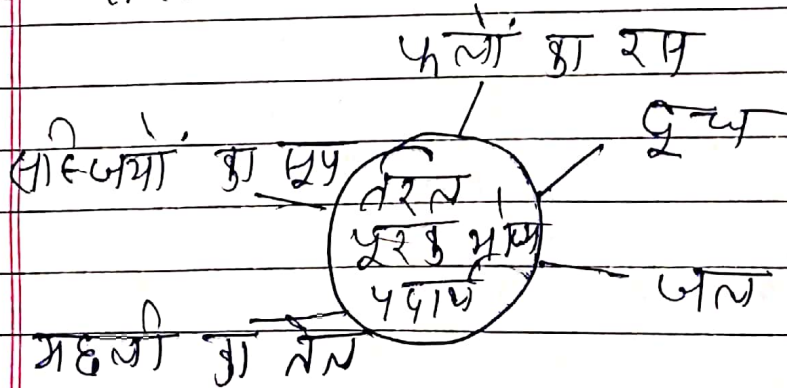 फलों का रस
दूध
सब्जियों का सूप
तरल
पूरक भोज्य
पदार्थ
जल
मछली का तेल